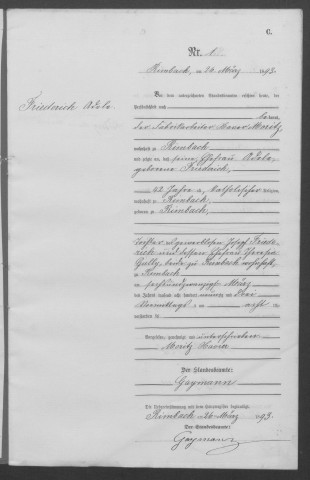 C.
Nr. 1
Rimbach, am 26. März 1893.
Friederich Adele
Vor dem unterzeichneten Standesbeamten erschien heute, der
Persönlichkeit nach
kannt,
der Fabrikarbeiter Hauer Moritz,
wohnhaft in Rimbach
und zeigte an, daß seine Ehefrau Adele,
geborene Friederich,
42 Jahre alt, katholischer Religion,
wohnhaft in Rimbach,
geboren zu Rimbach,
Tochter des Josef Friede-
rich und dessen Ehefrau Theresia
Gully, beide zu Rimbach wohnhaft,
zu Rimbach
am sechsundzwanzigsten März
des Jahres tausend acht hundert neunzig und drei
Vormittags um acht Uhr
verstorben sei
Vorgelesen, genehmigt und unterschrieben
Moritz Hauer
Der Standesbeamte:
Gaymann
Die Uebereinstimmung mit dem Hauptregister beglaubigt.
Rimbach, am 26. März 1893.
Der Standesbeamte:
Gaymann